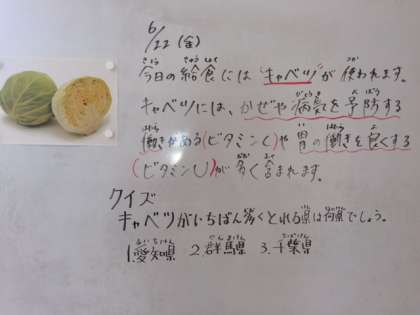 6/22(金)
今日の給食には"キャベツ"が使われます。
キャベツには、かぜや病気を予防する
働きがある(ビタミンC)や胃の働きを良くする
(ビタミンU)が多く含まれます。
クイズ
キャベツがいちばん多くとれる県は何県でしょう。
1.愛知県 2.群馬県 3.千葉県